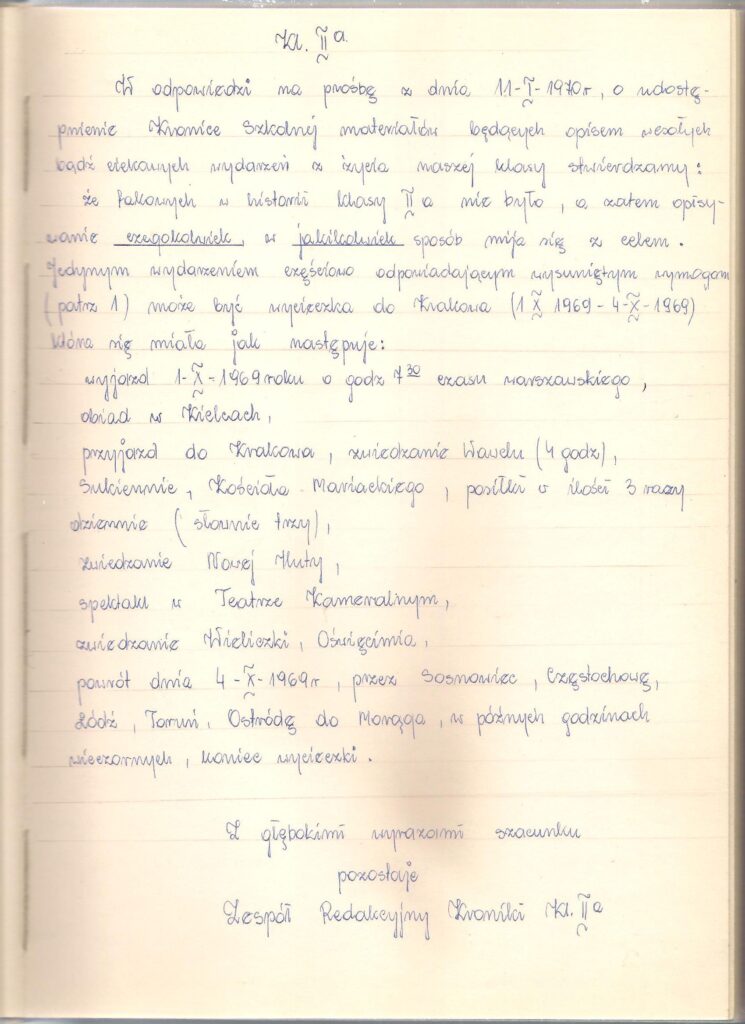 Kl. II a.
W odpowiedzi na prośbę z dnia 11-I-1970r, o udostę-
pnienie Kronice Szkolnej materiałów będących opisem wesołych
bądź ciekawych wydarzeń z życia naszej klasy stwierdzamy:
że takowych w historii klasy II a nie było, a zatem opisy-
wanie czegokolwiek, w jakikolwiek sposób mija się z celem.
Jedynym wydarzeniem częściowo odpowiadającym wysuniętym wymogom
(patrz 1) może być wycieczka do Krakowa (1 X 1969 - 4-X-1969)
która się miała jak następuje:
wyjazd 1-X-1969 roku o godz 7 30 czasu warszawskiego,
obiad w Kielcach,
przyjazd do Krakowa, zwiedzanie Wawelu (4 godz),
Sukiennic, Kościoła Mariackiego, posiłki w ilości 3 razy
dziennie (słownie trzy),
zwiedzanie Nowej Huty,
spektakl w Teatrze Kameralnym,
zwiedzanie Wieliczki, Oświęcimia,
powrót dnia 4-X-1969r, przez Sosnowiec, Częstochowę,
Łódź, Toruń, Ostródę do Morąga, w późnych godzinach
wieczornych, koniec wycieczki.
Z głębokimi wyrazami szacunku
pozostaje
Zespół Redakcyjny Kroniki Kl. II a